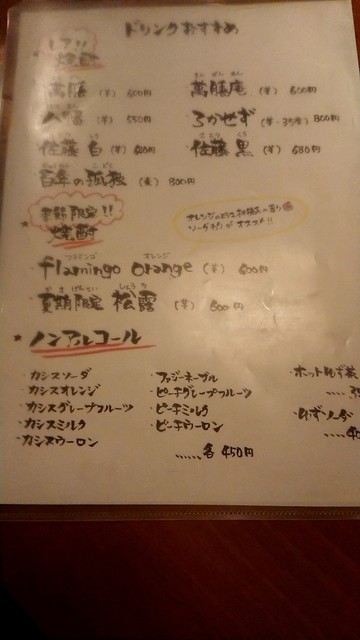 ドリンクおすすめ
レア!!
焼酎
萬膳 (芋) 600円 萬膳庵 (芋) 600円
八幡 (芋) 550円 ろかせず (芋・35度) 800円
佐藤 白 (芋) 680円 佐藤 黒 (芋) 680円
百年の孤独 (麦) 800円
季節限定!!
焼酎
オレンジの
ソーダ割がオススメ!!
フラミンゴ オレンジ
flamingo orange (芋) 600円
夏期限定 松露 (芋) 600円
ノンアルコール
・カシスソーダ ・ファジーネーブル ・ホットゆず茶
・カシスオレンジ ・ピーチグレープフルーツ
・カシスグレープフルーツ ・ピーチミルク
・カシスミルク ・ピーチウーロン
・カシスウーロン ......各450円